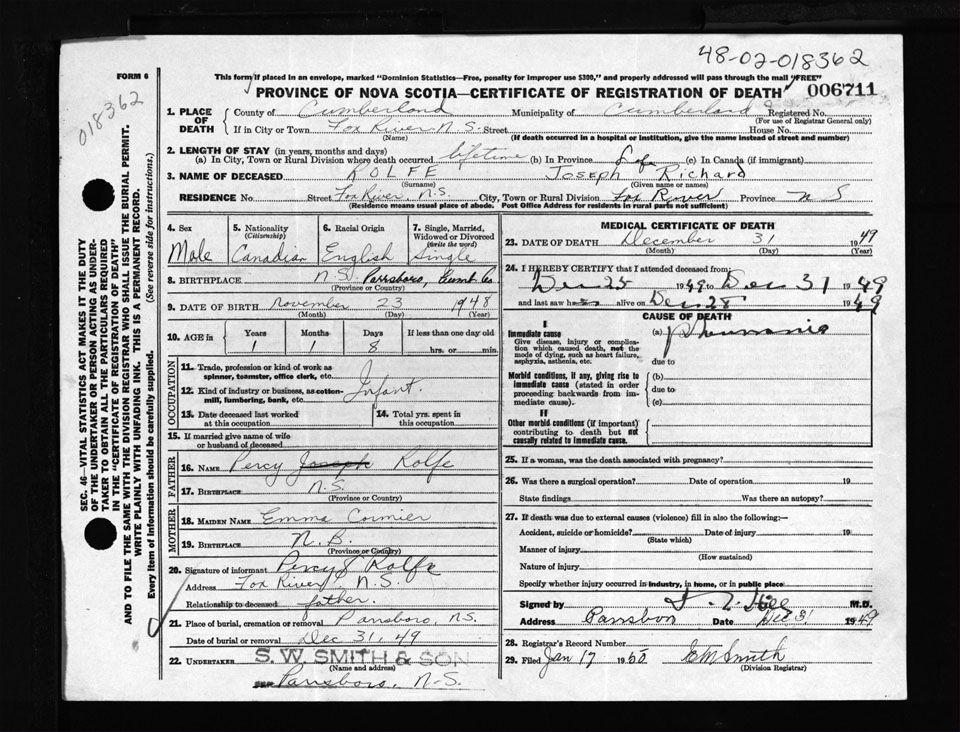 48-02-018362
018362
FORM 6
This form if placed in an envelope, marked "Dominion Statistics—Free, penalty for improper use $300," and properly addressed will pass through the mail "FREE"
PROVINCE OF NOVA SCOTIA—CERTIFICATE OF REGISTRATION OF DEATH 006711
SEC. 46—VITAL STATISTICS ACT MAKES IT THE DUTY
OF THE UNDERTAKER OR PERSON ACTING AS UNDER-
TAKER TO OBTAIN ALL THE PARTICULARS REQUIRED
IN THE "CERTIFICATE OF REGISTRATION OF DEATH"
AND TO FILE THE SAME WITH THE DIVISION REGISTRAR WHO SHALL ISSUE THE BURIAL PERMIT.
WRITE PLAINLY WITH UNFADING INK. THIS IS A PERMANENT RECORD.
Every item of information should be carefully supplied. (See reverse side for instructions.)
1. PLACE OF DEATH County of Cumberland Municipality of Cumberland Registered No.
(For use of Registrar General only)
If in City or Town Fox River N.S. Street House No.
(Name) (If death occurred in a hospital or institution, give the name instead of street and number)
2. LENGTH OF STAY (in years, months and days)
(a) In City, Town or Rural Division where death occurred lifetime (b) In Province Life (c) In Canada (if immigrant)
3. NAME OF DECEASED ROLFE Joseph Richard
(Surname) (Given name or names)
RESIDENCE No. Street Fox River, N.S. City, Town or Rural Division Fox River Province N S
(Residence means usual place of abode. Post Office Address for residents in rural parts not sufficient)
4. Sex 5. Nationality (Citizenship) 6. Racial Origin 7. Single, Married, Widowed or Divorced (write the word)
Male Canadian English Single
8. BIRTHPLACE N.S. Parrsboro, Cumb Co
(Province or Country)
9. DATE OF BIRTH November 23 1948
(Month) (Day) (Year)
10. AGE in Years Months Days If less than one day old
1 1 8 hrs. or min.
OCCUPATION
11. Trade, profession or kind of work as spinner, teamster, office clerk, etc.
12. Kind of industry or business, as cotton-mill, lumbering, bank, etc. Infant.
13. Date deceased last worked at this occupation 14. Total yrs. spent in this occupation
15. If married give name of wife or husband of deceased
FATHER
16. NAME Percy Joseph Rolfe
17. BIRTHPLACE N.S.
(Province or Country)
MOTHER
18. MAIDEN NAME Emma Cormier
19. BIRTHPLACE N.B.
(Province or Country)
20. Signature of informant Percy J Rolfe
Address Fox River, N.S.
Relationship to deceased father.
21. Place of burial, cremation or removal Parrsboro, N.S.
Date of burial or removal Dec 31, 49
22. UNDERTAKER S. W. SMITH & SON
(Name and address)
Parrsboro, N.S.
MEDICAL CERTIFICATE OF DEATH
23. DATE OF DEATH December 31 1949
(Month) (Day) (Year)
24. I HEREBY CERTIFY that I attended deceased from:
Dec 25 1949 to Dec 31 1949
and last saw h alive on Dec 28 1949
CAUSE OF DEATH
I
Immediate cause (a) Pneumonia
Give disease, injury or complication which caused death, not the mode of dying, such as heart failure, asphyxia, asthenia, etc. due to
Morbid conditions, if any, giving rise to immediate cause (stated in order proceeding backwards from immediate cause). (b)
due to
(c)
II
Other morbid conditions (if important) contributing to death but not causally related to immediate cause.
25. If a woman, was the death associated with pregnancy?
26. Was there a surgical operation? Date of operation 19
State findings Was there an autopsy?
27. If death was due to external causes (violence) fill in also the following:—
Accident, suicide or homicide? Date of injury 19
(State which)
Manner of injury
(How sustained)
Nature of injury
Specify whether injury occurred in industry, in home, or in public place
Signed by Hill M.D.
Address Parrsboro Date Dec 31 1949
28. Registrar's Record Number
29. Filed Jan 17 1950 E M Smith
(Division Registrar)